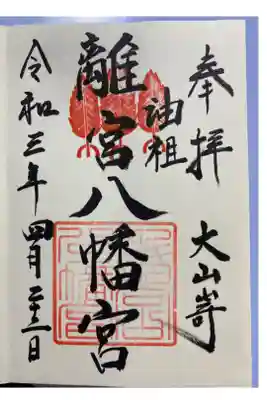 奉拝
大山崎
油祖
離宮八幡宮
令和三年四月二十三日